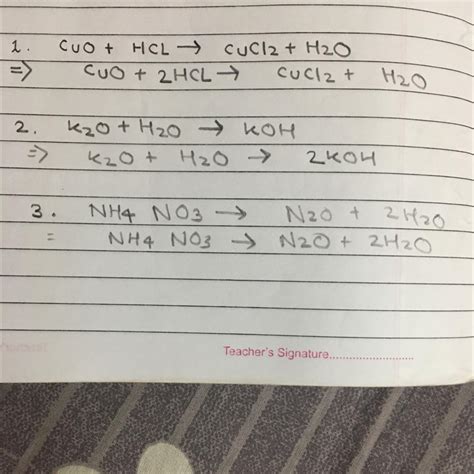 1. CuO + HCL → CUCl2 + H2O
=> CuO + 2HCL → CUCl2 + H2O
2. K2O + H2O → KOH
=> K2O + H2O → 2KOH
3. NH4 NO3 → N2O + 2H2O
= NH4 NO3 → N2O + 2H2O
Teacher's Signature..........................